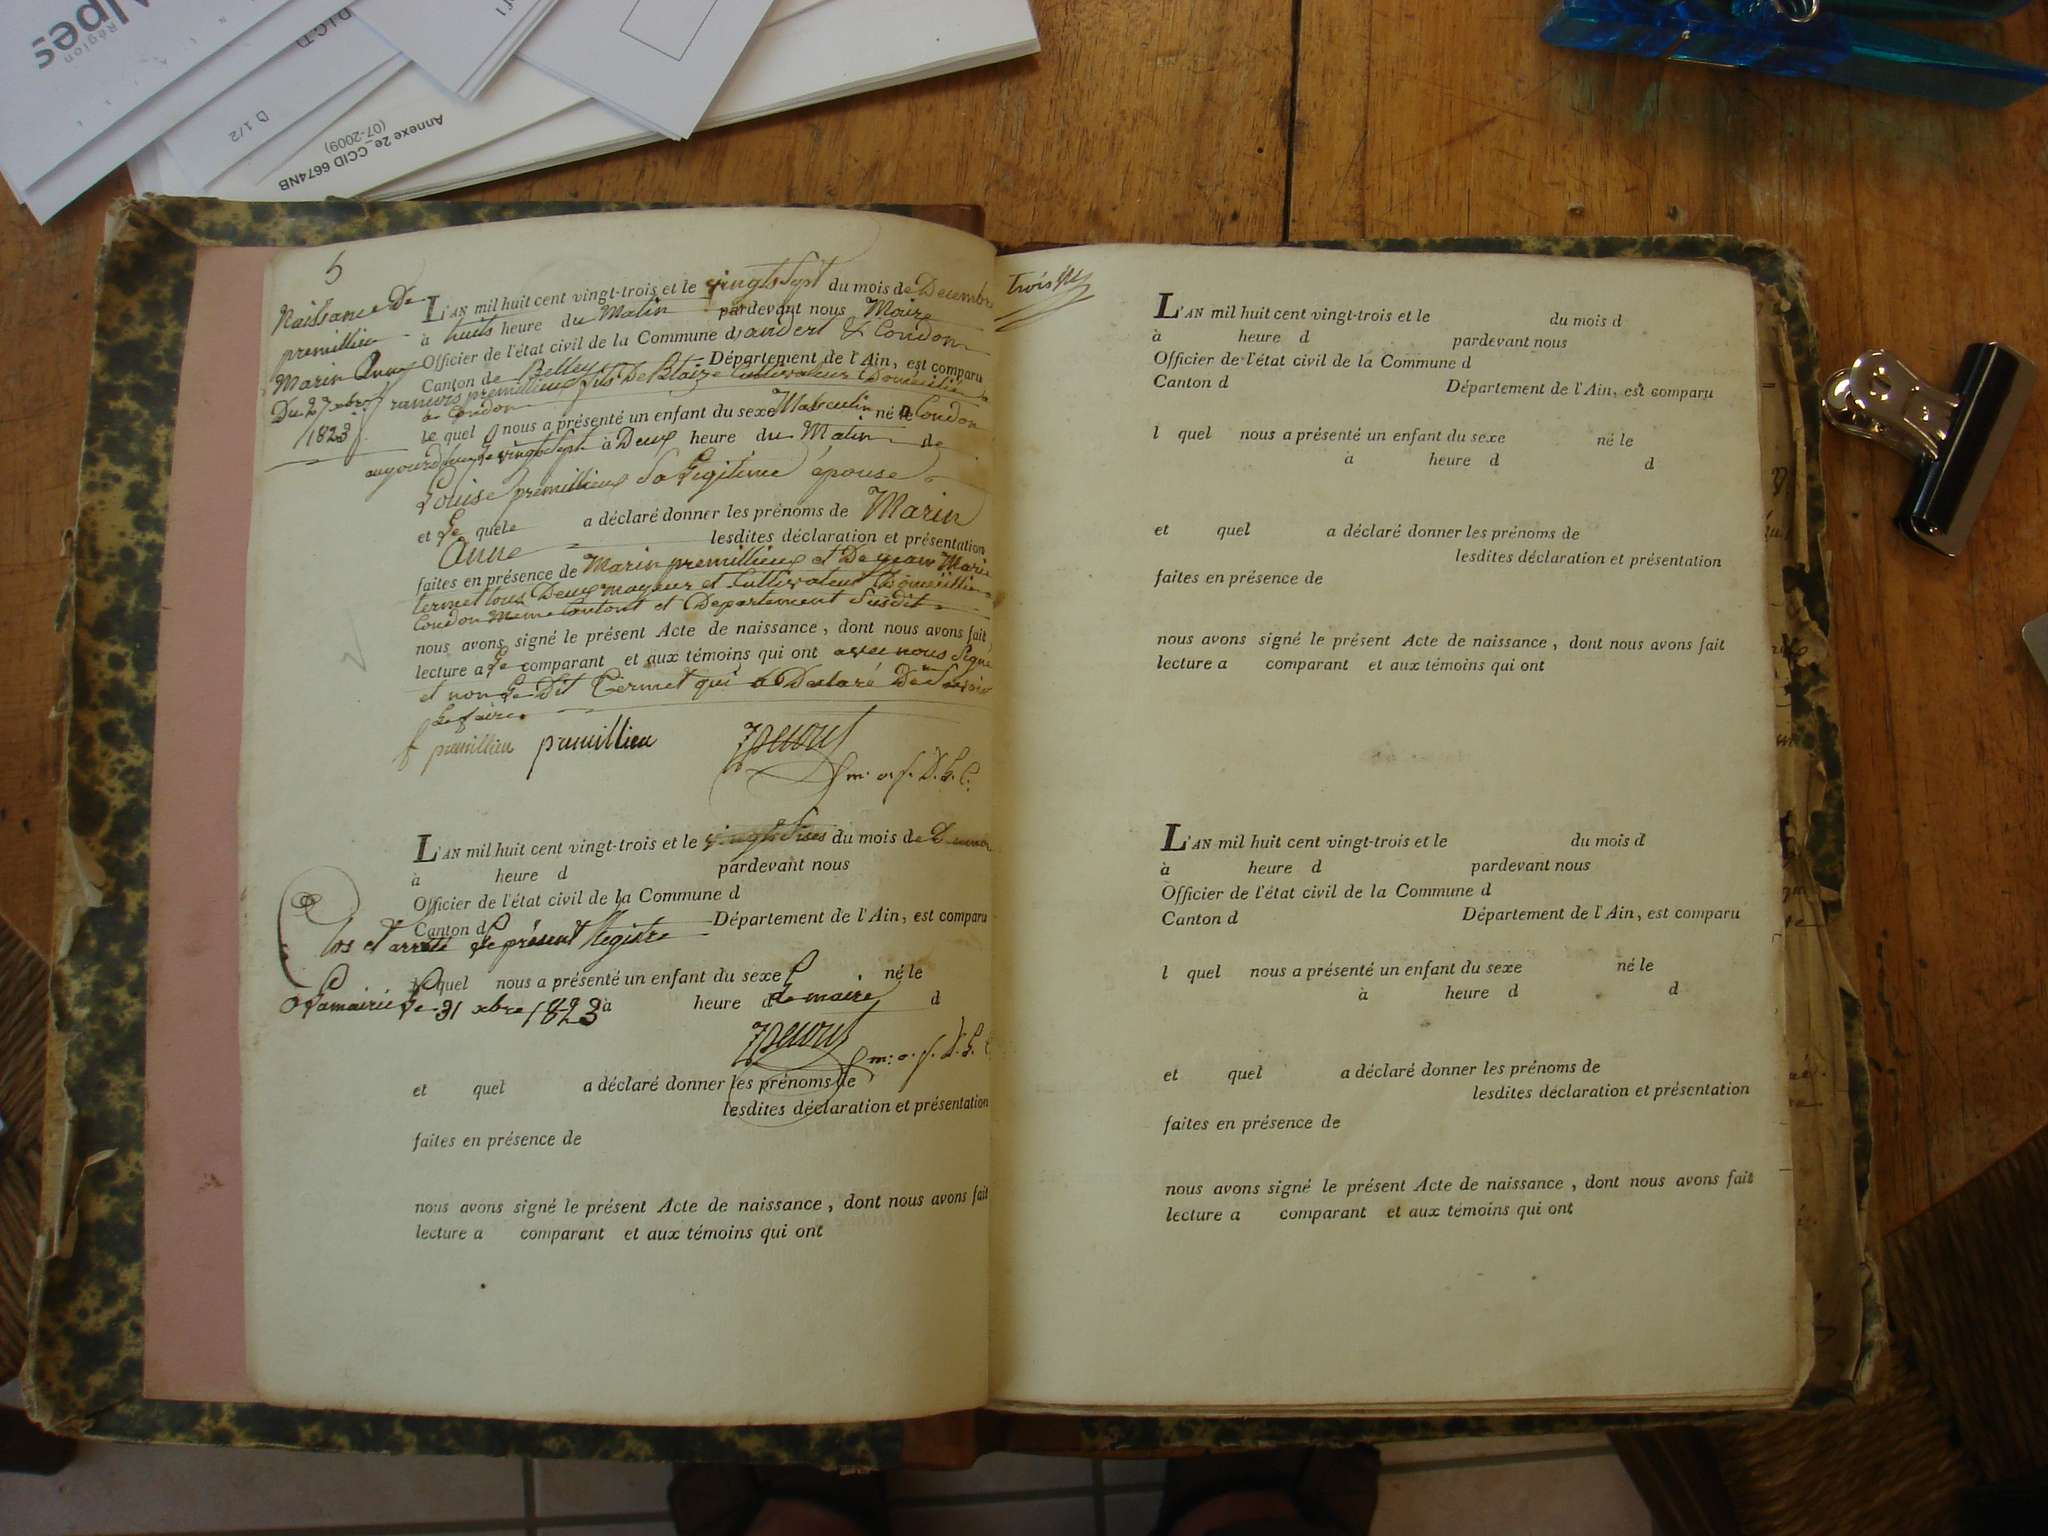 Région
Alpes
DICD
D 1/2
Annexe 2e CCID 6674NB
(07-2009)
5
Naissance De
premillieu
Marin Anne
Du 27 xbre
1823
L'AN mil huit cent vingt-trois et le vingt Sept du mois de Decembre
à huits heure du Matin pardevant nous Maire
Officier de l'état civil de la Commune d'andert & Condon
Canton de Belley Département de l'Ain, est comparu
francois premillieux fils De Blaize Cultivateur Domicilié
a Condon
Le quel nous a présenté un enfant du sexe Masculin né a Condon
aujourdhuy le vingt Sept à Deux heure du Matin de
Louise premillieux Sa Legitime épouse
et Le quele a déclaré donner les prénoms de Marin
Anne lesdites déclaration et présentation
faites en présence de Marin premillieux et De jean Marie
termet tous Deux mayeurs et Cultivateur Domicillie
Condon Meme Cantont et Departement Susdit
nous avons signé le présent Acte de naissance, dont nous avons fait
lecture a Le comparant et aux témoins qui ont avec nous Signé
et non Le Dit Termet qui a Déclaré De Savoir
Le faire.
f premillieu premillieu
m. o. f. D. L. C.
L'AN mil huit cent vingt-trois et le du mois de
à heure d pardevant nous
Officier de l'état civil de la Commune d
Canton d Département de l'Ain, est comparu
Clos et arrété Le présent Registre
L quel nous a présenté un enfant du sexe né le
A Lamairie Le 31 xbre 1823 à heure d Le maire d
m. o. f. D. L. C.
et quel a déclaré donner les prénoms de
lesdites déclaration et présentation
faites en présence de
nous avons signé le présent Acte de naissance, dont nous avons fait
lecture a comparant et aux témoins qui ont
trois
L'AN mil huit cent vingt-trois et le du mois d
à heure d pardevant nous
Officier de l'état civil de la Commune d
Canton d Département de l'Ain, est comparu
l quel nous a présenté un enfant du sexe né le
à heure d d
et quel a déclaré donner les prénoms de
lesdites déclaration et présentation
faites en présence de
nous avons signé le présent Acte de naissance, dont nous avons fait
lecture a comparant et aux témoins qui ont
L'AN mil huit cent vingt-trois et le du mois d
à heure d pardevant nous
Officier de l'état civil de la Commune d
Canton d Département de l'Ain, est comparu
l quel nous a présenté un enfant du sexe né le
à heure d d
et quel a déclaré donner les prénoms de
lesdites déclaration et présentation
faites en présence de
nous avons signé le présent Acte de naissance, dont nous avons fait
lecture a comparant et aux témoins qui ont